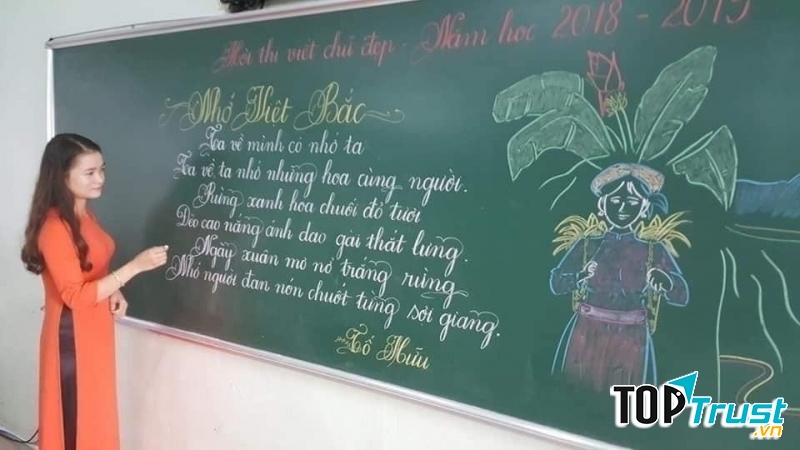 Hội thi viết chữ đẹp - Năm học 2018 - 2019
Nhớ Việt Bắc
Ta về mình có nhớ ta
Ta về ta nhớ những hoa cùng người.
Rừng xanh hoa chuối đỏ tươi
Đèo cao nắng ánh dao gài thắt lưng.
Ngày xuân mơ nở trắng rừng
Nhớ người đan nón chuốt từng sợi giang.
Tố Hữu
TOPTrust.vn